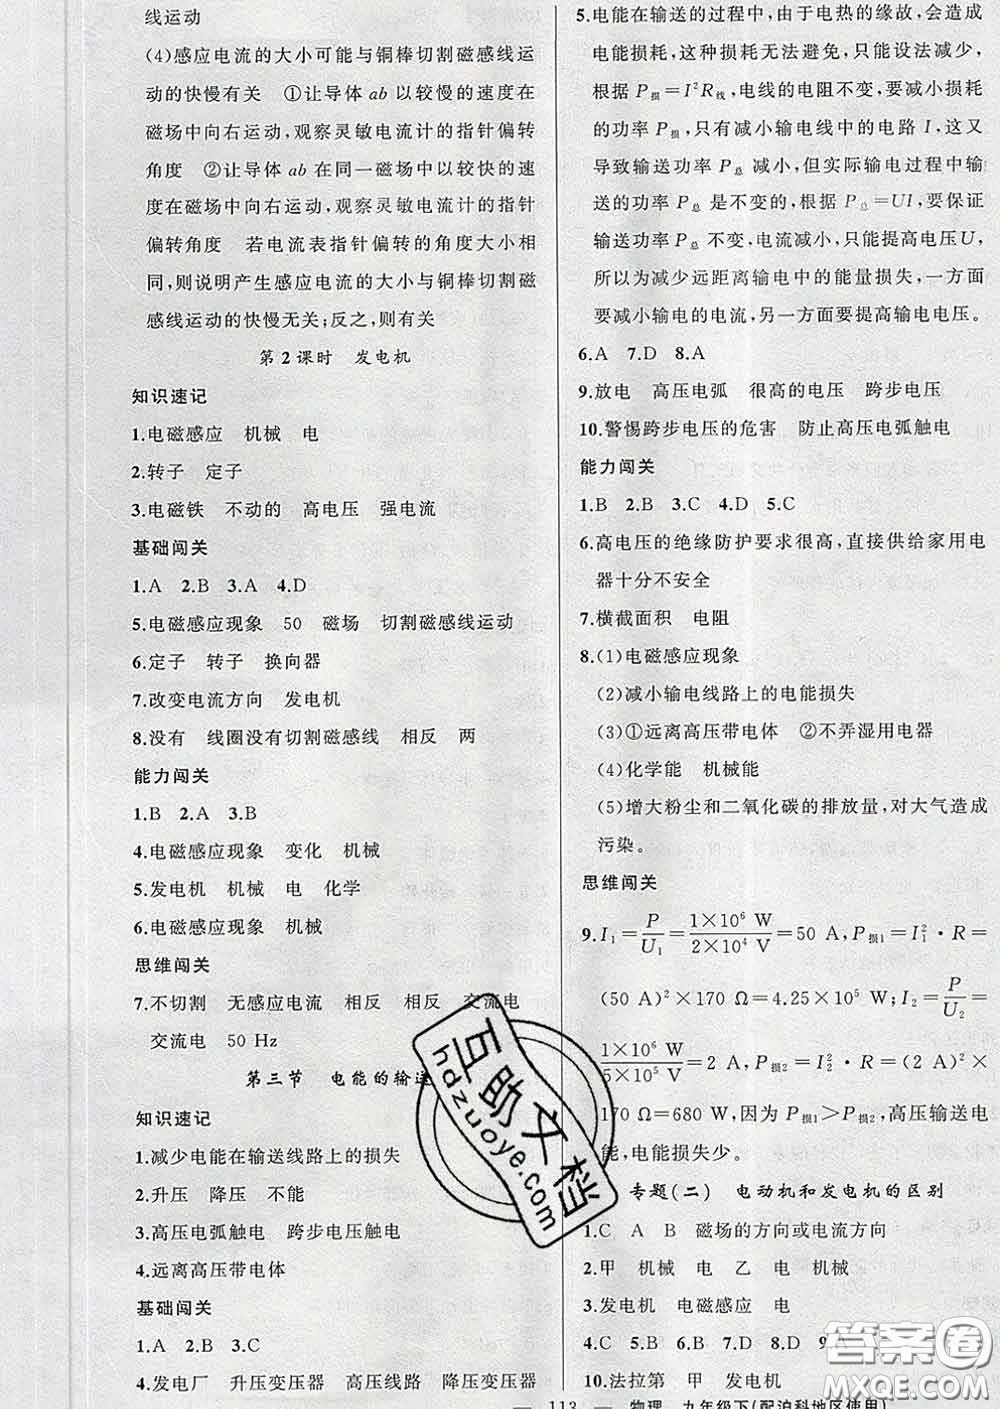 线运动
(4)感应电流的大小可能与铜棒切割磁感线运
动的快慢有关 ①让导体 ab 以较慢的速度在
磁场中向右运动,观察灵敏电流计的指针偏转
角度 ②让导体 ab 在同一磁场中以较快的速
度在磁场中向右运动,观察灵敏电流计的指针
偏转角度 若电流表指针偏转的角度大小相
同,则说明产生感应电流的大小与铜棒切割磁
感线运动的快慢无关;反之,则有关
第2课时 发电机
知识速记
1.电磁感应 机械 电
2.转子 定子
3.电磁铁 不动的 高电压 强电流
基础闯关
1.A 2.B 3.A 4.D
5.电磁感应现象 50 磁场 切割磁感线运动
6.定子 转子 换向器
7.改变电流方向 发电机
8.没有 线圈没有切割磁感线 相反 两
能力闯关
1.B 2.A 3.B
4.电磁感应现象 变化 机械
5.发电机 机械 电 化学
6.电磁感应现象 机械
思维闯关
7.不切割 无感应电流 相反 相反 交流电
交流电 50 Hz
第三节 电能的输送
知识速记
1.减少电能在输送线路上的损失
2.升压 降压 不能
3.高压电弧触电 跨步电压触电
4.远离高压带电体
基础闯关
1.A 2.B 3.C
4.发电厂 升压变压器 高压线路 降压变压器
5.电能在输送的过程中,由于电热的缘故,会造成
电能损耗,这种损耗无法避免,只能设法减少,
根据 P损=I²R线,电线的电阻不变,要减小损耗
的功率 P损,只有减小输电线中的电路 I,这又
导致输送功率 P总 减小,但实际输电过程中输
送的功率 P总 是不变的,根据 P总=UI,要保证
输送功率 P总 不变,电流减小,只能提高电压U,
所以为减少远距离输电中的能量损失,一方面
要减小输电的电流,另一方面要提高输电电压。
6.A 7.D 8.A
9.放电 高压电弧 很高的电压 跨步电压
10.警惕跨步电压的危害 防止高压电弧触电
能力闯关
1.B 2.B 3.C 4.D 5.C
6.高电压的绝缘防护要求很高,直接供给家用电
器十分不安全
7.横截面积 电阻
8.(1)电磁感应现象
(2)减小输电线路上的电能损失
(3)①远离高压带电体 ②不弄湿用电器
(4)化学能 机械能
(5)增大粉尘和二氧化碳的排放量,对大气造成
污染。
思维闯关
9.I₁=P/U₁=1×10⁶ W/2×10⁴ V=50 A,P损1=I₁²·R=
(50 A)²×170 Ω=4.25×10⁵ W;I₂=P/U₂=
1×10⁶ W/5×10⁵ V=2 A,P损2=I₂²·R=(2 A)²×
170 Ω=680 W,因为 P损1>P损2,高压输送电
能,电能损失少。
专题(二) 电动机和发电机的区别
1.C A B 磁场的方向或电流方向
2.甲 机械 电 乙 电 机械
3.发电机 电磁感应 电
4.C 5.B 6.B 7.B 8.D 9.A
10.法拉第 甲 发电机
— 113 — 物理 九年级下(配沪科地区使用)
互助文档
hdzuoye.com
答案圈
MXQE.COM